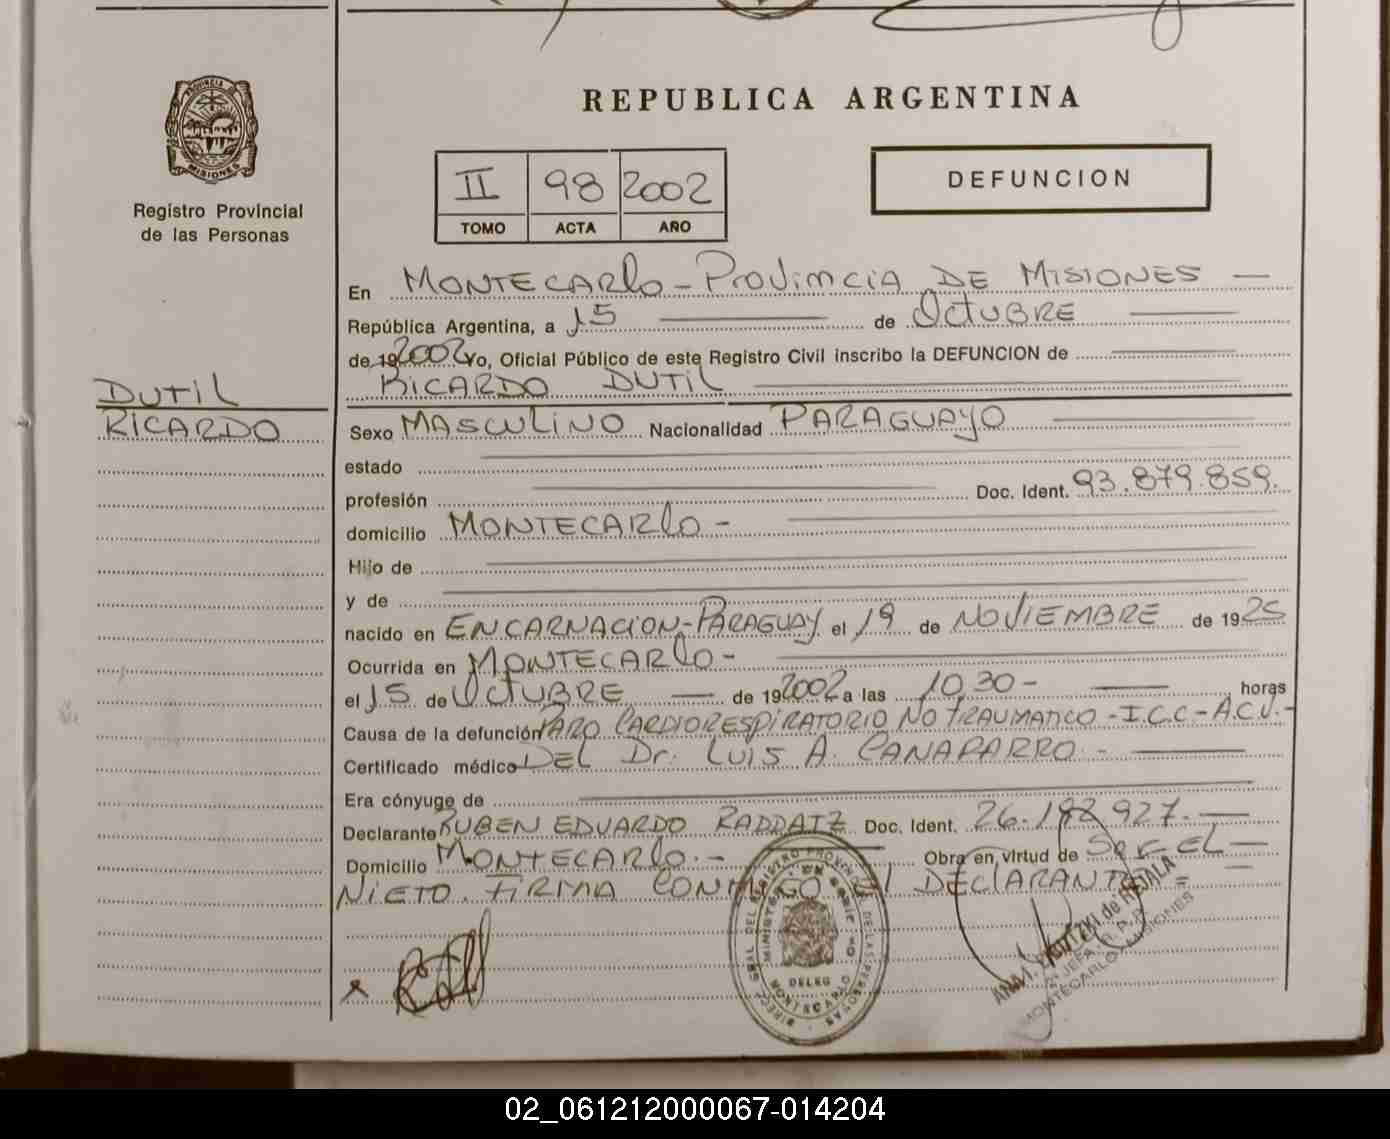 REPUBLICA ARGENTINA
PROVINCIA DE
MISIONES
Registro Provincial
de las Personas
II 98 2002
TOMO ACTA AÑO
DEFUNCION
En MONTECARLO - PROVINCIA DE MISIONES
República Argentina, a 15 de OCTUBRE
de 192002 Yo, Oficial Público de este Registro Civil inscribo la DEFUNCION de
RICARDO DUTIL
DUTIL
RICARDO
Sexo MASCULINO Nacionalidad PARAGUAYO
estado
profesión Doc. Ident. 93.879.859.
domicilio MONTECARLO -
Hijo de
y de
nacido en ENCARNACION - PARAGUAY el 19 de NOVIEMBRE de 1925
Ocurrida en MONTECARLO -
el 15 de OCTUBRE de 192002 a las 10,30 - horas
Causa de la defunción PARO CARDIORESPIRATORIO NO TRAUMATICO - I.C.C - A.C.V. -
Certificado médico DEL Dr. LUIS A. CANAPARRO -
Era cónyuge de
Declarante RUBEN EDUARDO RADDATZ Doc. Ident. 26.192.927.
Domicilio MONTECARLO. - Obra en virtud de Ser EL
NIETO. FIRMA CONMIGO El DECLARANTE =
DELEG
MONTECARLO
ANA I. de REJALA
JEFA R. P. P.
MONTECARLO - MISIONES
02_061212000067-014204